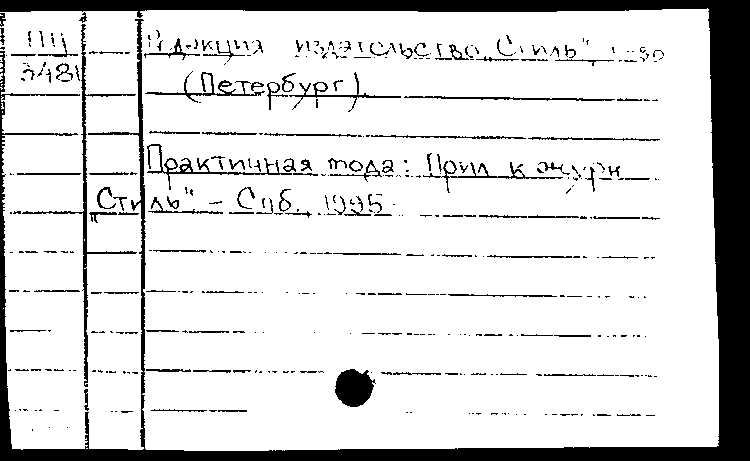 ПЧ Редакция издательство „Стиль",
3481 (Петербург).
Практичная мода: Прил к журн
„Стиль". – Спб., 1995.